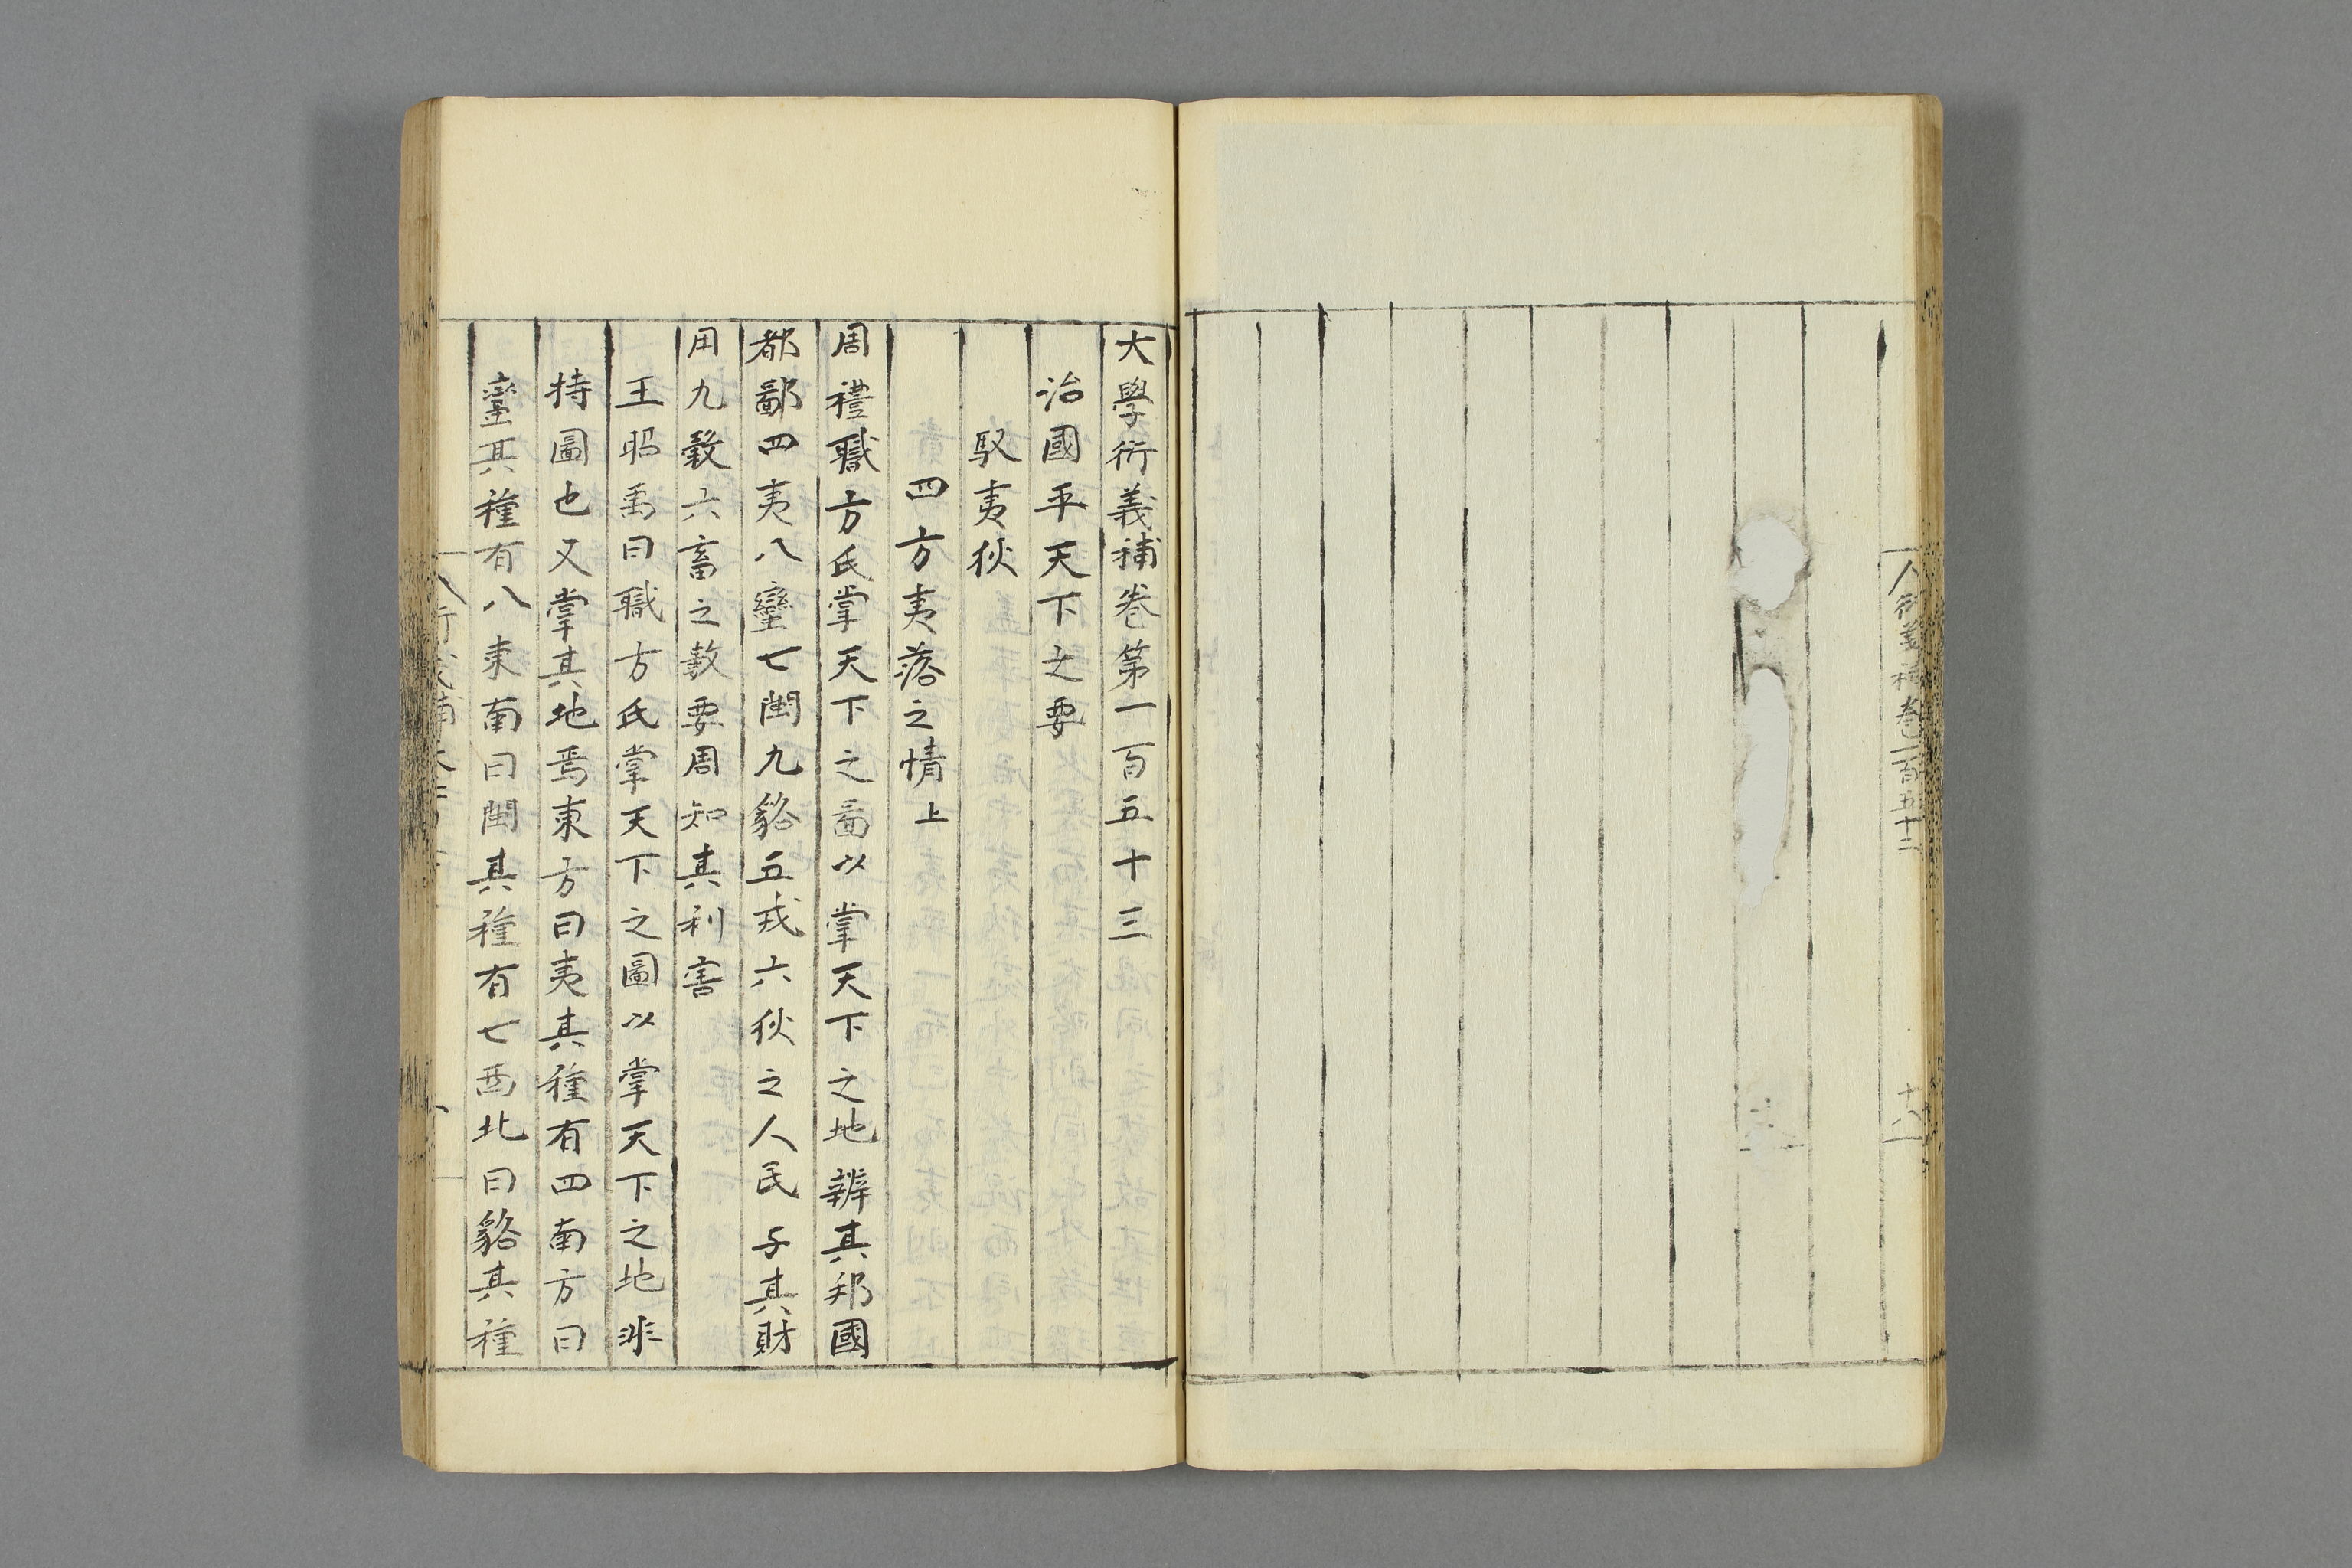 衍義補卷一百五十二
十八
大學衍義補卷第一百五十三
治國平天下之要
馭夷狄
四方夷落之情上
周禮職方氏掌天下之啚以掌天下之地辨其邦國
都鄙四夷八蠻七閩九貉五戎六狄之人民与其財
用九穀六畜之数要周知其利害
王昭禹曰職方氏掌天下之圖以掌天下之地非
特圖也又掌其地焉東方曰夷其種有四南方曰
蠻其種有八東南曰閩其種有七西北曰貉其種